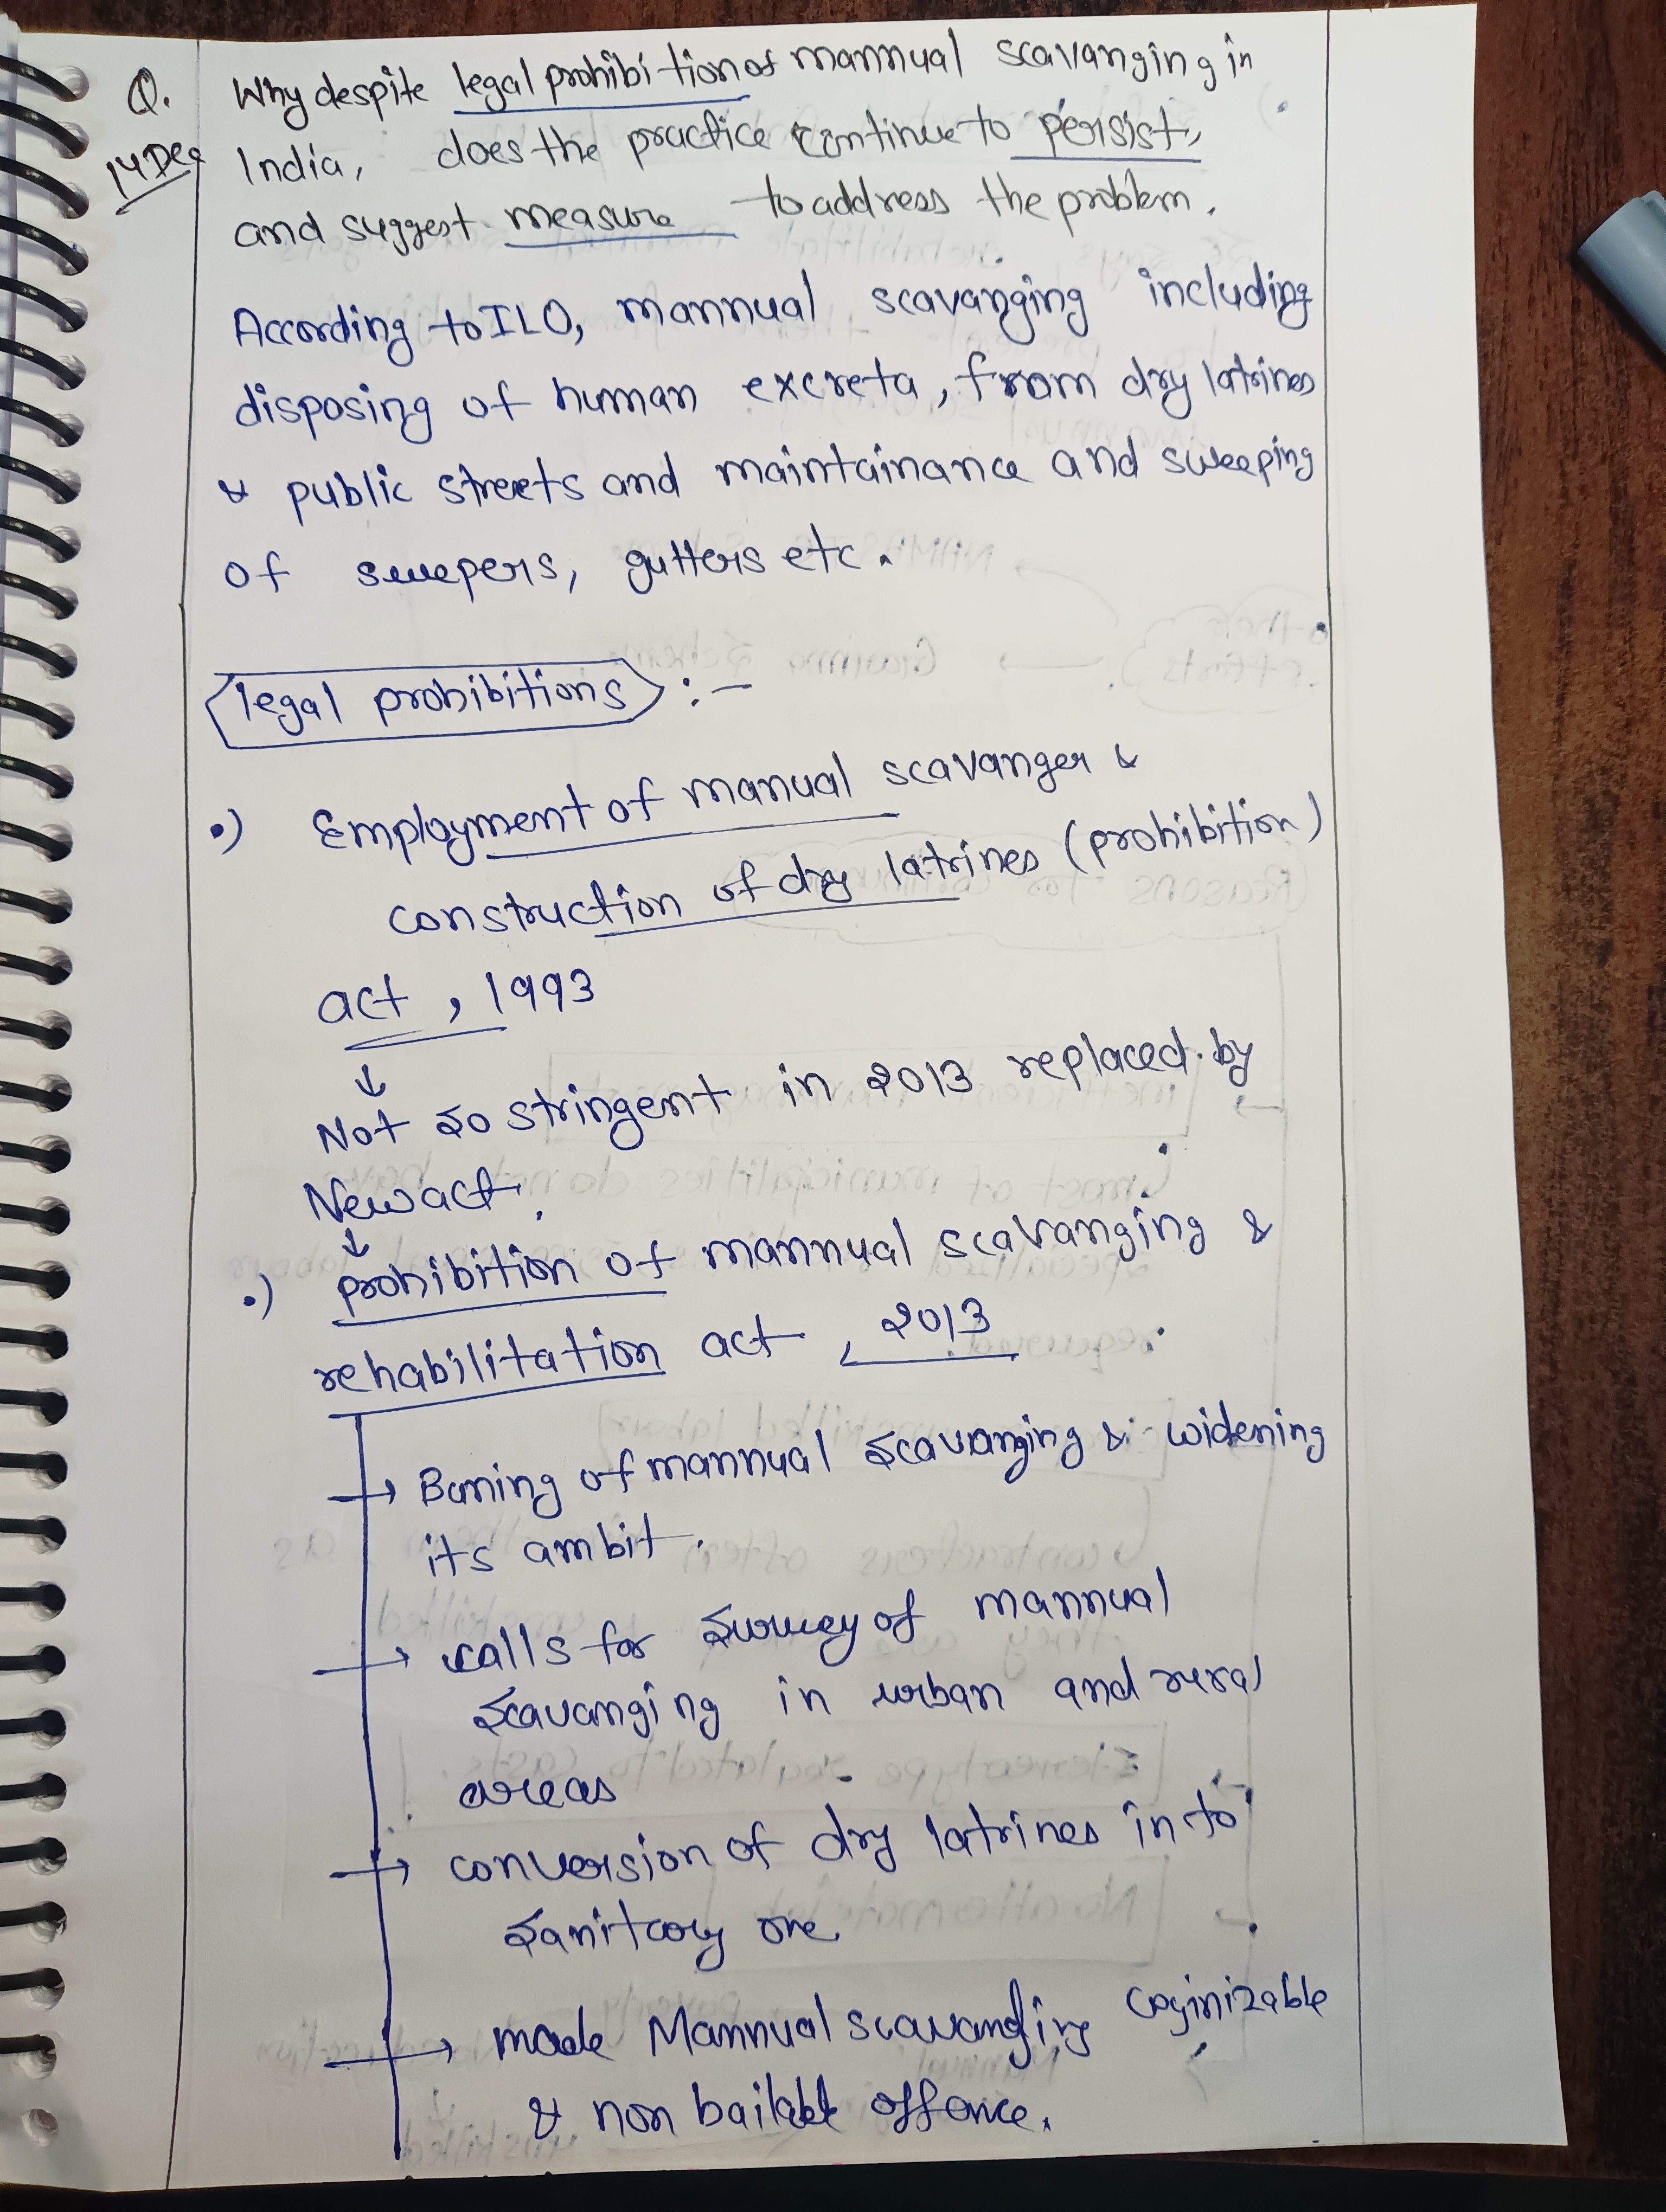 Q. Why despite legal prohibition of mannual scavanging in
14 Dec India, does the practice continue to persist,
and suggest measure to address the problem.
According to ILO, mannual scavanging including
disposing of human excreta, from dry latrines
& public streets and maintainance and sweeping
of sweepers, gutters etc.
legal prohibitions :-
•) Employment of manual scavanger &
construction of dry latrines (prohibition)
act, 1993
↓
Not so stringent in 2013 replaced by
New act.
↓
•) prohibition of mannual scavanging &
rehabilitation act, 2013
→ Baning of mannual scavanging & widening
its ambit.
→ calls for survey of mannual
scavanging in urban and rural
areas
→ conversion of dry latrines in to
sanitary one
→ made Mannual scavanging coginizable
& non bailable offence.